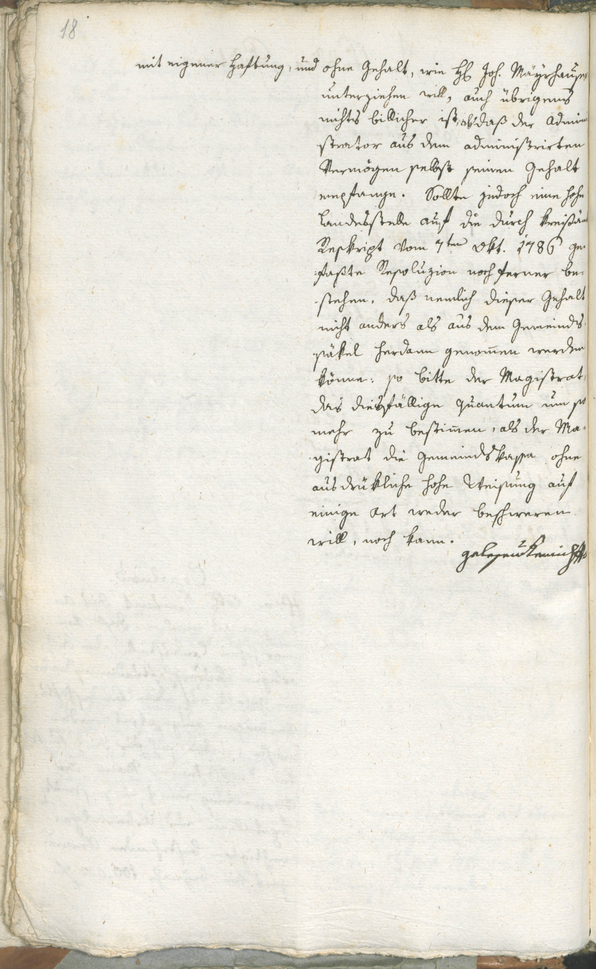 18
mit eigener Haftung, und ohne Gehalt, wie H Joh. Mäyrhauser
unterziehen will, auch übrigens
nichts billicher ist, daß der Admin
strator aus dem administrirten
Vermögen selbst seinen Gehalt
empfange. Sollte jedoch eine hohe
Landesstelle auf die durch kreisäm
Reskript vom 7ten Okt. 1786 ge-
faßte Resoluzion noch ferner be-
stehen, daß nemlich dieser Gehalt
nicht anders als aus dem Gemeinds-
säkel herdann genommen werden
könne: so bitte der Magistrat,
das diesfällige Quantum um so
mehr zu bestimen, als der Ma-
gistrat die Gemeindskassa ohne
ausdrükliche hohe Weisung auf
einige Art weder beschweren
will, noch kann.
gelesen